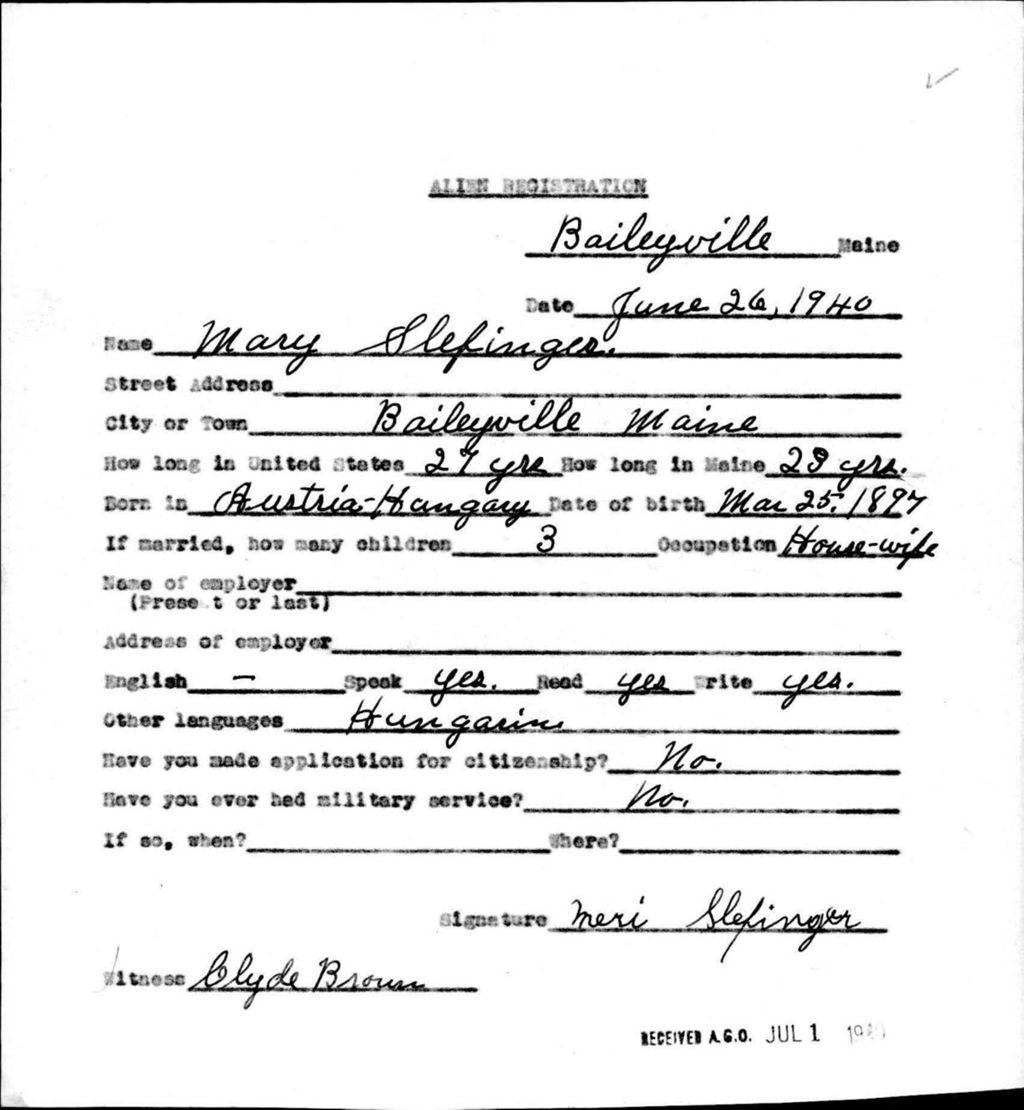 ALIEN REGISTRATION
Baileyville Maine
Date June 26, 1940
Name Mary Slefinger.
Street Address
City or Town Baileyville Maine
How long in United States 27 yrs How long in Maine 23 yrs.
Born in Austria-Hungary Date of birth Mar 25, 1897
If married, how many children 3 Occupation House-wife
Name of employer
(Present or last)
Address of employer
English - Speak yes. Read yes Write yes.
Other languages Hungarian
Have you made application for citizenship? No.
Have you ever had military service? No.
If so, when? Where?
Signature Meri Slefinger
Witness Clyde Brown
RECEIVED A.G.O. JUL 1 1940